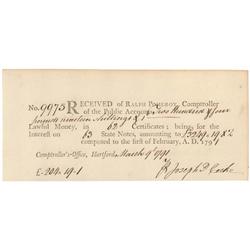 No. 9973 RECEIVED of RALPH POMEROY, Comptroller
of the Public Accounts, Two Hundred & four
pounds nineteen shillings & 1
Lawful Money, in 62 Certificates; being for the
Interest on 13 State Notes, amounting to £3249.19.2
computed to the first of February, A. D. 1791
Comptroller's-Office, Hartford, March 9th 1791
£204.19.1 Joseph